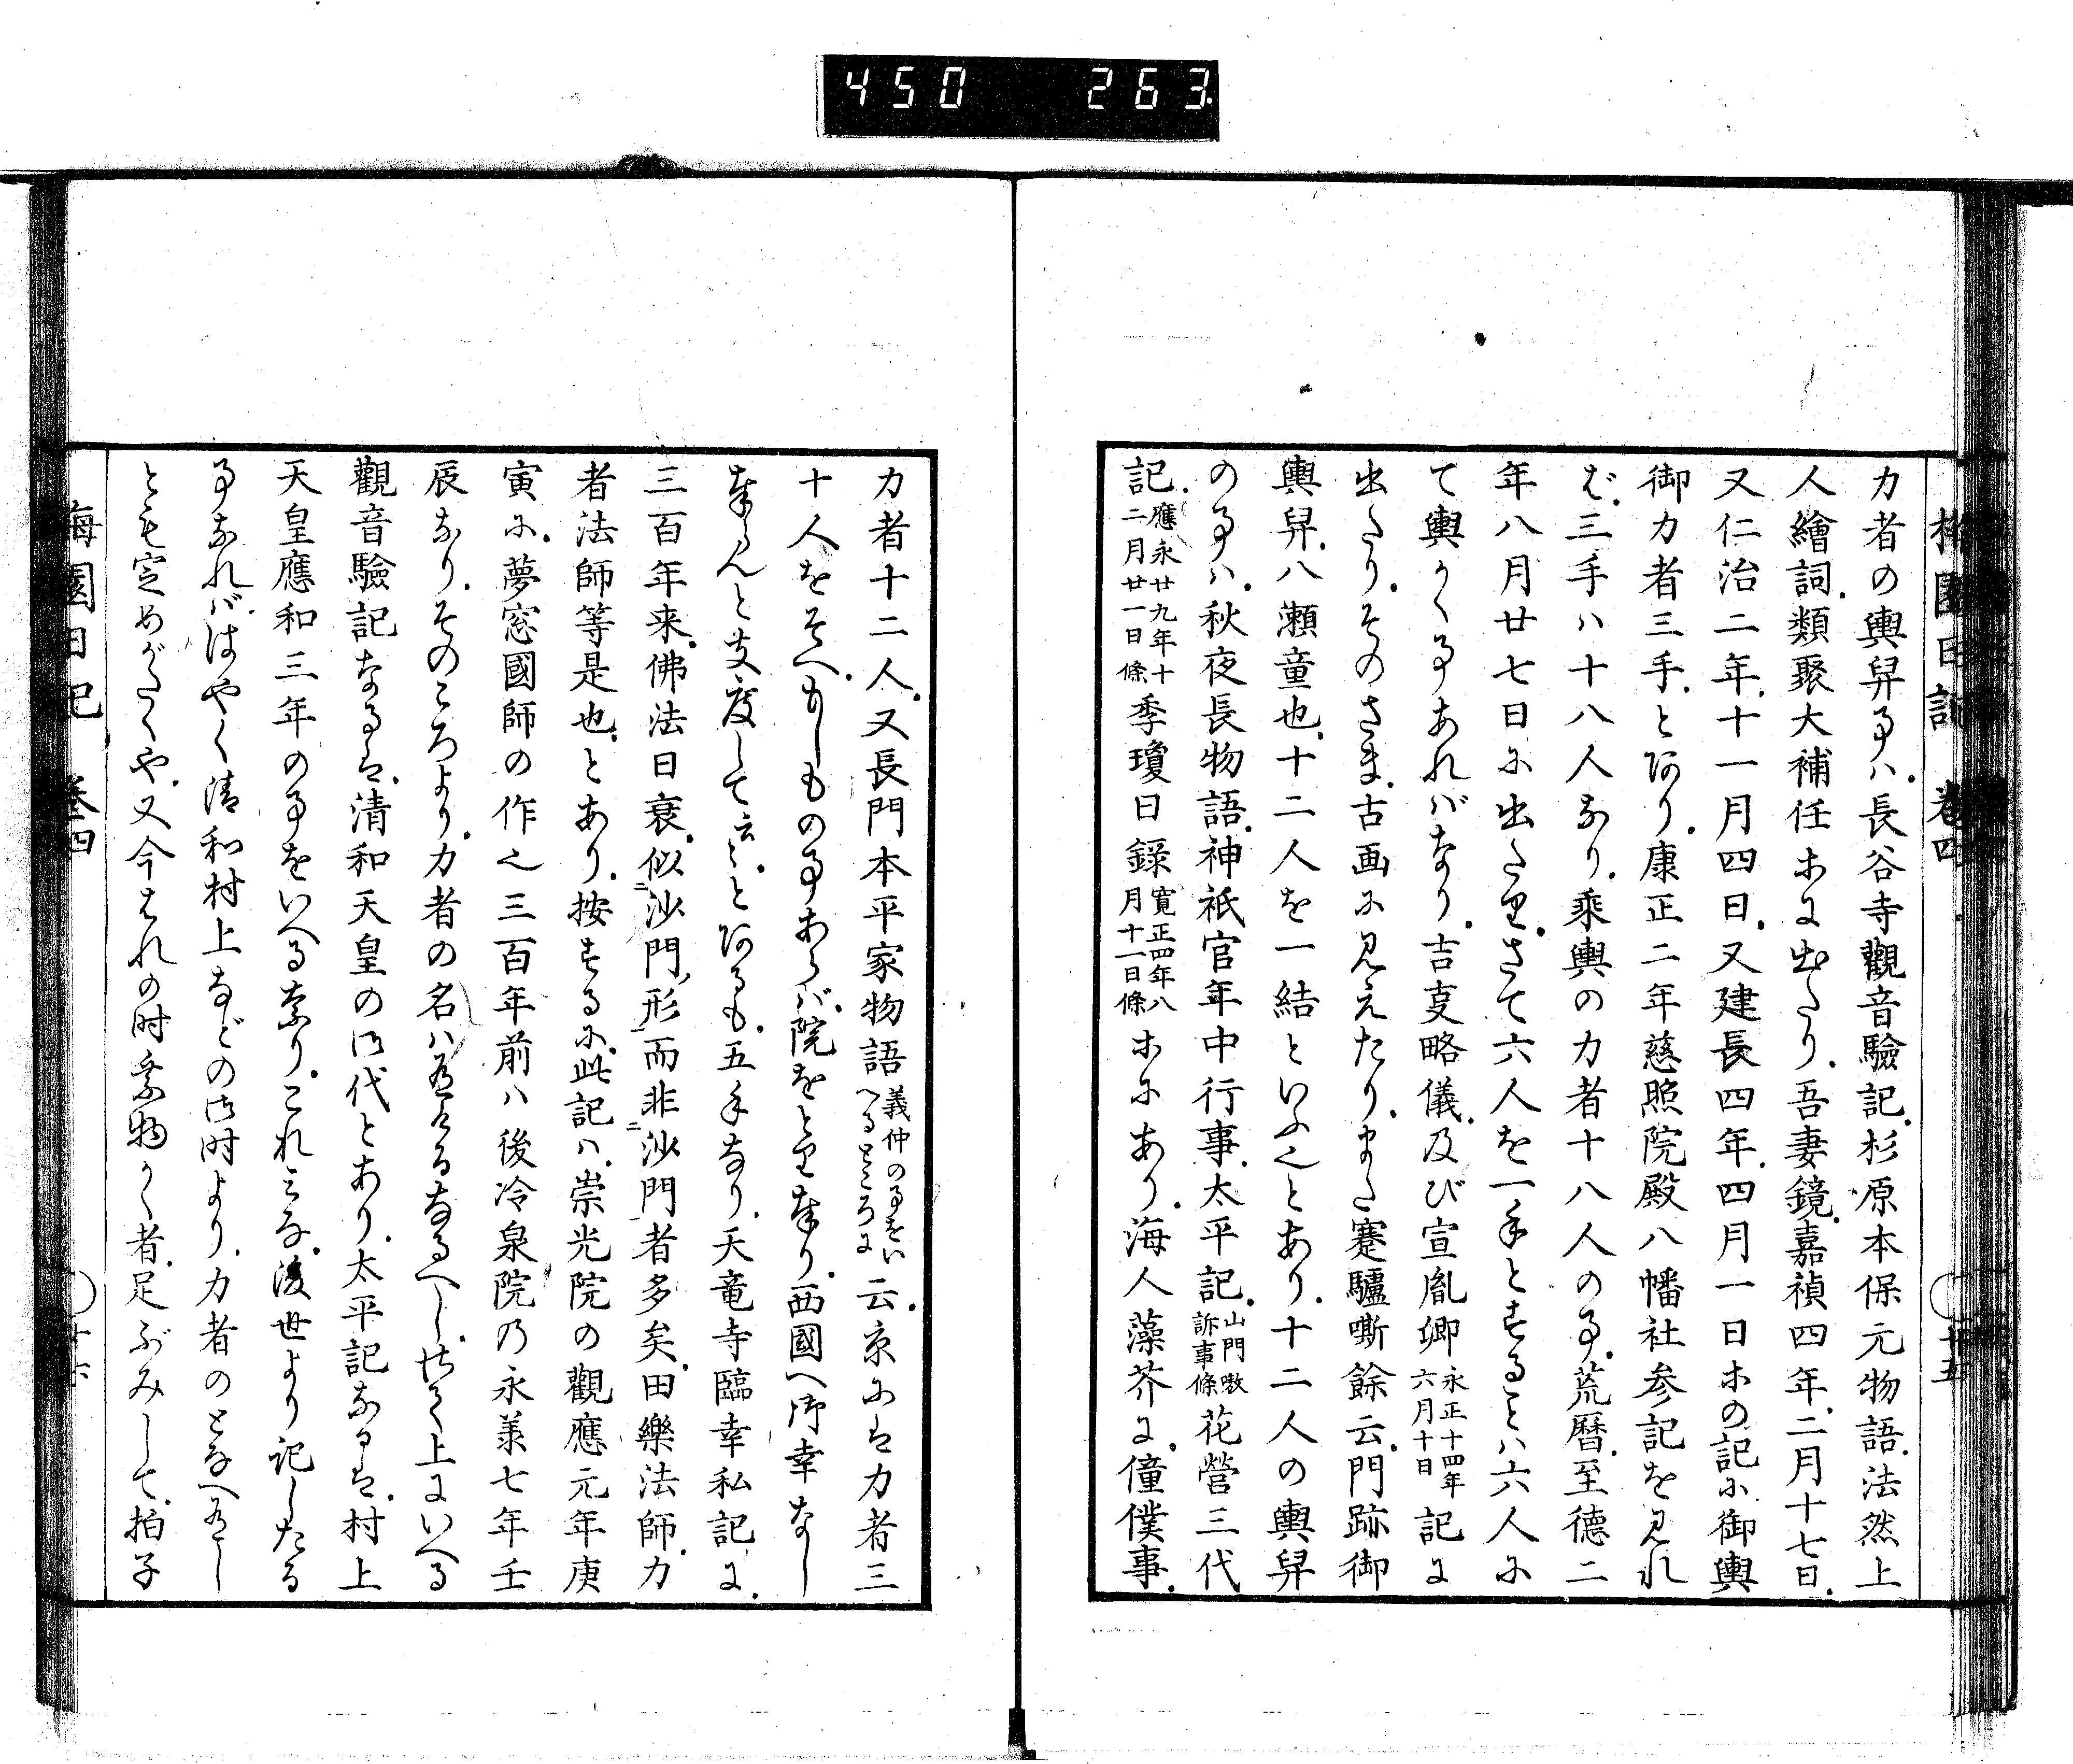 450 263
梅園日記 卷四 廿五
力者の輿舁事ハ.長谷寺觀音驗記.杉原本保元物語.法然上
人繪詞.類聚大補任ホに出たり.吾妻鏡.嘉禎四年.二月十七日.
又仁治二年.十一月四日.又建長四年.四月一日ホの記に御輿
御力者三手.とあり.康正二年慈照院殿八幡社参記を見れ
ば.三手ハ十八人なり.乘輿の力者十八人の事.荒暦.至德二
年八月廿七日に出たり.さて六人を一手とすることハ六人に
て輿かく事あれバなり.吉叓略儀.及び宣胤卿 永正十四年六月十日 記に
出たり.そのさま.古画に見えたり.また蹇驢嘶餘云.門跡御
輿舁.八瀬童也.十二人を一結といふとあり.十二人の輿舁
の事ハ.秋夜長物語.神祇官年中行事.太平記. 山門嗷訴事條 花營三代
記. 應永廿九年十二月廿一日條 季瓊日錄 寛正四年八月十一日條 ホにあり.海人藻芥に.僮僕事.
力者十二人.又長門本平家物語 義仲の事をいへるところに 云.京にハ力者三
十人をそへ.もしもの事あらバ.院をとり奉り.西國へ御幸なし
奉らんと支度して云々.とあるも.五手なり.天竜寺臨幸私記に.
三百年来.佛法日衰.似沙門形而非沙門者多矣.田樂法師.力
者法師等是也.とあり.按するに.此記ハ.崇光院の觀應元年庚
寅に.夢窓國師の作之三百年前ハ後冷泉院乃永羕七年壬
辰なり.そのころより.力者の名ハ有けるなるへし.さて上にいへる
觀音驗記なるは.清和天皇の御代とあり.太平記なるは.村上
天皇應和三年の事をいへるなり.これミな.後世より記したる
事なれバ.はやく清和村上などの御時より.力者のとなへ有し
とも定めがたくや.又今はれの时乗物かく者.足ぶみして.拍子
梅園日記 卷四 廿六